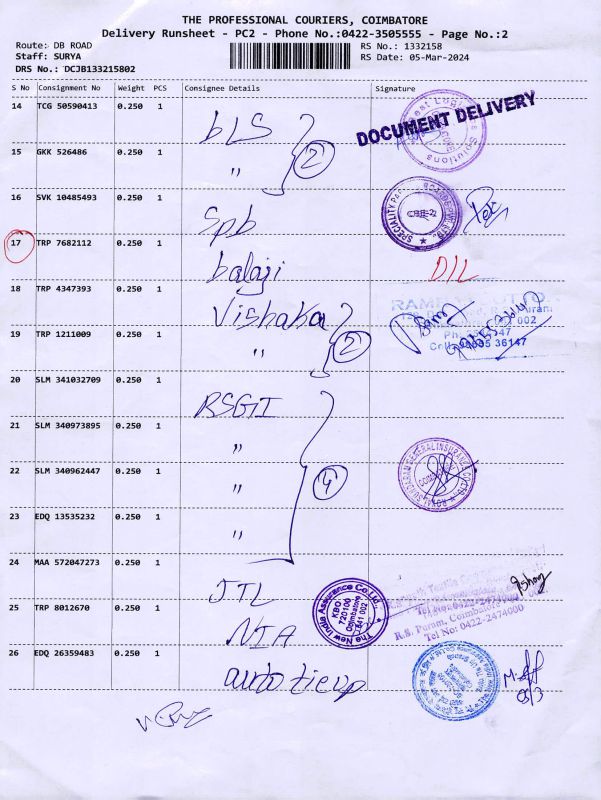 THE PROFESSIONAL COURIERS, COIMBATORE
Delivery Runsheet - PC2 - Phone No.:0422-3505555 - Page No.:2
Route: DB ROAD RS No.: 1332158
Staff: SURYA RS Date: 05-Mar-2024
DRS No.: DCJB133215802
S No Consignment No Weight PCS Consignee Details Signature
14 TCG 50590413 0.250 1 bLS DOCUMENT DELIVERY
15 GKK 526486 0.250 1 " 2
16 SVK 10485493 0.250 1 Spb
17 TRP 7682112 0.250 1 balaji D/L
18 TRP 4347393 0.250 1 Vishaka
19 TRP 1211009 0.250 1 " 2
20 SLM 341032709 0.250 1 RSGI
21 SLM 340973895 0.250 1 "
22 SLM 340962447 0.250 1 " 4
23 EDQ 13535232 0.250 1 "
24 MAA 572047273 0.250 1 JTL
The New India Assurance Co.Ltd.,
KBO
720100
Coimbatore
641 002
R.S. Puram, Coimbatore
Tel No: 0422-2474000
25 TRP 8012670 0.250 1 NIA
26 EDQ 26359483 0.250 1 auto tieup